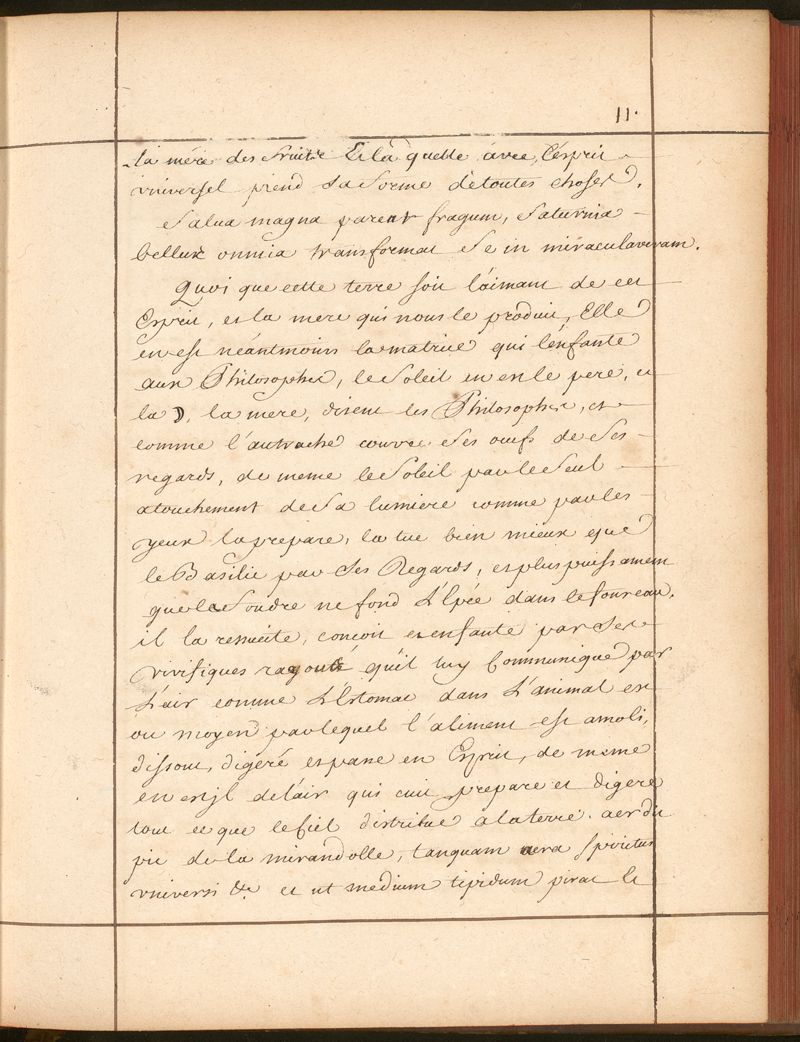 11.
la mére des fruits & la quelle avec l'esprit
vniversel prend la forme de toutes choses.
Salua magna parens fragum, Saturnia
tellus omnia transformat se in miracula veram.
Quoi que cette terre soit l'aimant de cet
Esprit, et la mere qui nous le produit, Elle
en est néantmoins la matrice qui l'enfante
aux Philosophes, le Soleil en est le pere, et
la ☽, la mere, disent les Philosophes, et
comme l'autruche couve ses oeufs de ses
regards, de meme le Soleil par le seul
atouchement de sa lumiere comme par les
yeux la prepare, la tue bien mieux que
le Basilic par ses Regards, et plus puissament
que le foudre ne fond L'Epée dans le foureau.
il la resucite, conçoit et enfante par ses
vivifiques qu'il luy Communique par
L'air comme L'Estomac dans L'animal est
ou moyen par lequel l'aliment est amoli,
dissout, digeré et passe en Esprit, de meme
en est jl de l'air qui cuit prepare et digere
tout ce que le ciel distribue a la terre. aer dit
pic de la mirandolle, tanquam spiritus
vniversi &c. et ut medium tipidum